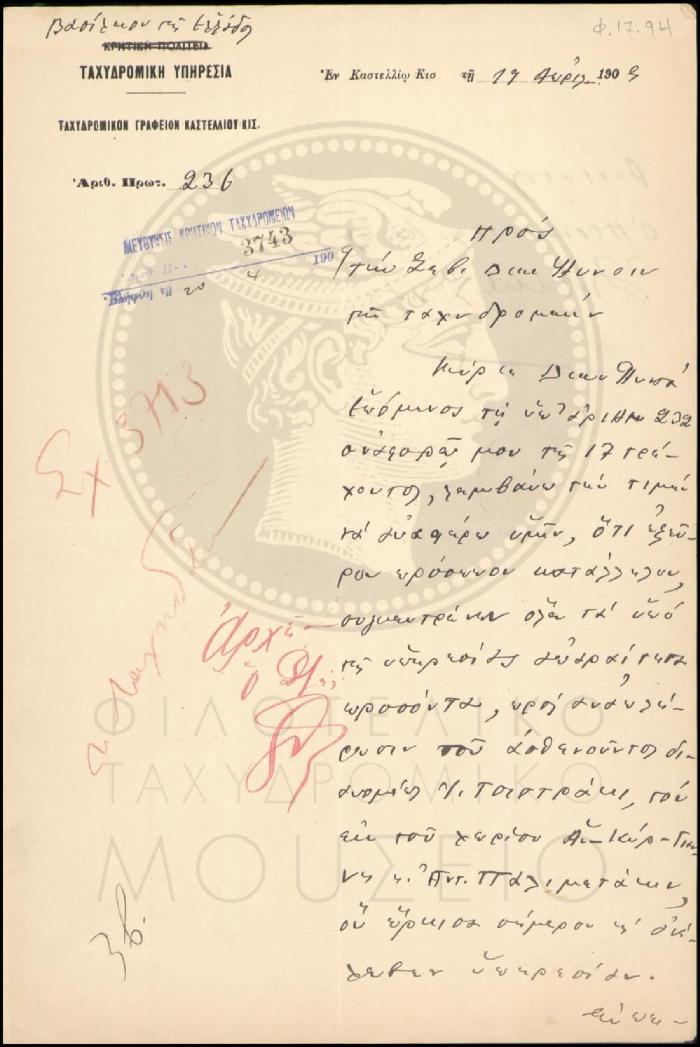 Βασίλειον της Ελλάδος
ΚΡΗΤΙΚΗ ΠΟΛΙΤΕΙΑ
Φ.17.94
ΤΑΧΥΔΡΟΜΙΚΗ ΥΠΗΡΕΣΙΑ
Ἐν Καστελλίῳ Κισ τῇ 19 Ἀπρίλ. 1909
ΤΑΧΥΔΡΟΜΙΚΟΝ ΓΡΑΦΕΙΟΝ ΚΑΣΤΕΛΛΙΟΥ ΚΙΣ.
Ἀριθ. Πρωτ. 236
ΔΙΕΥΘΥΝΣΙΣ ΚΡΗΤΙΚΩΝ ΤΑΧΥΔΡΟΜΕΙΩΝ
3743
20 4 1909
Πρός
τὴν Σεβ. Διεύθυνσιν
τῶν ταχυδρομείων
Κύριε Διευθυντά
Ἑπόμενος τῇ ὑπ' ἀριθμ 232
ἀναφορᾷ μου τῆς 17 τρέ-
χοντος, λαμβάνω τὴν τιμὴν
νά ἀναφέρω ὑμῖν, ὅτι ἐξεῦ-
ρον πρόσωπον κατάλληλον,
συγκεντρῶνον ὅλα τά ὑπό
τῆς ὑπηρεσίας ἀπαραίτητα
προσόντα, πρός ἀναπλή-
ρωσιν τοῦ ἀσθενοῦντος δι-
ανομέως Τσιστράκι, τόν
ἐκ τοῦ χωρίου Ἁϊ-Κύρ-Γιάν-
νη κ. Ἀντ. Παλιμετάκην,
οὗ ὥρκισα σήμερον κ' ἀνέ-
λαβεν ὑπηρεσίαν.
Σχ 3713
Ἀρχεῖ-
ὁ Δ/
ΦΙΛΟΤΕΛΙΚΟ
ΤΑΧΥΔΡΟΜΙΚΟ
ΜΟΥΣΕΙΟ